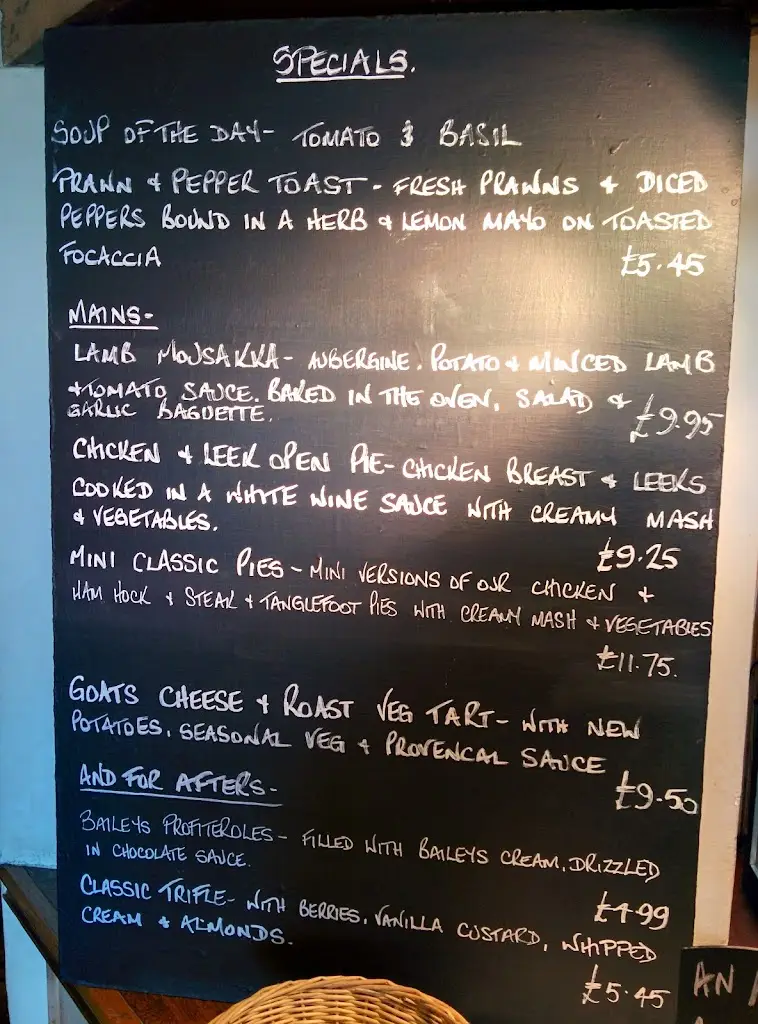 SPECIALS.
SOUP OF THE DAY- TOMATO & BASIL
PRAWN & PEPPER TOAST - FRESH PRAWNS & DICED
PEPPERS BOUND IN A HERB & LEMON MAYO ON TOASTED
FOCACCIA
£5.45
MAINS-
LAMB MOUSAKKA - AUBERGINE, POTATO & MINCED LAMB
& TOMATO SAUCE. BAKED IN THE OVEN, SALAD &
GARLIC BAGUETTE.
£9.95
CHICKEN & LEEK OPEN PIE - CHICKEN BREAST & LEEKS
COOKED IN A WHITE WINE SAUCE WITH CREAMY MASH
& VEGETABLES.
£9.25
MINI CLASSIC PIES - MINI VERSIONS OF OUR CHICKEN &
HAM HOCK & STEAK & TANGLEFOOT PIES WITH CREAMY MASH & VEGETABLES
£11.75.
GOATS CHEESE & ROAST VEG TART - WITH NEW
POTATOES, SEASONAL VEG & PROVENCAL SAUCE
£9.50
AND FOR AFTERS-
BAILEYS PROFITEROLES - FILLED WITH BAILEYS CREAM, DRIZZLED
IN CHOCOLATE SAUCE.
£4.99
CLASSIC TRIFLE - WITH BERRIES, VANILLA CUSTARD, WHIPPED
CREAM & ALMONDS.
£5.45
AN